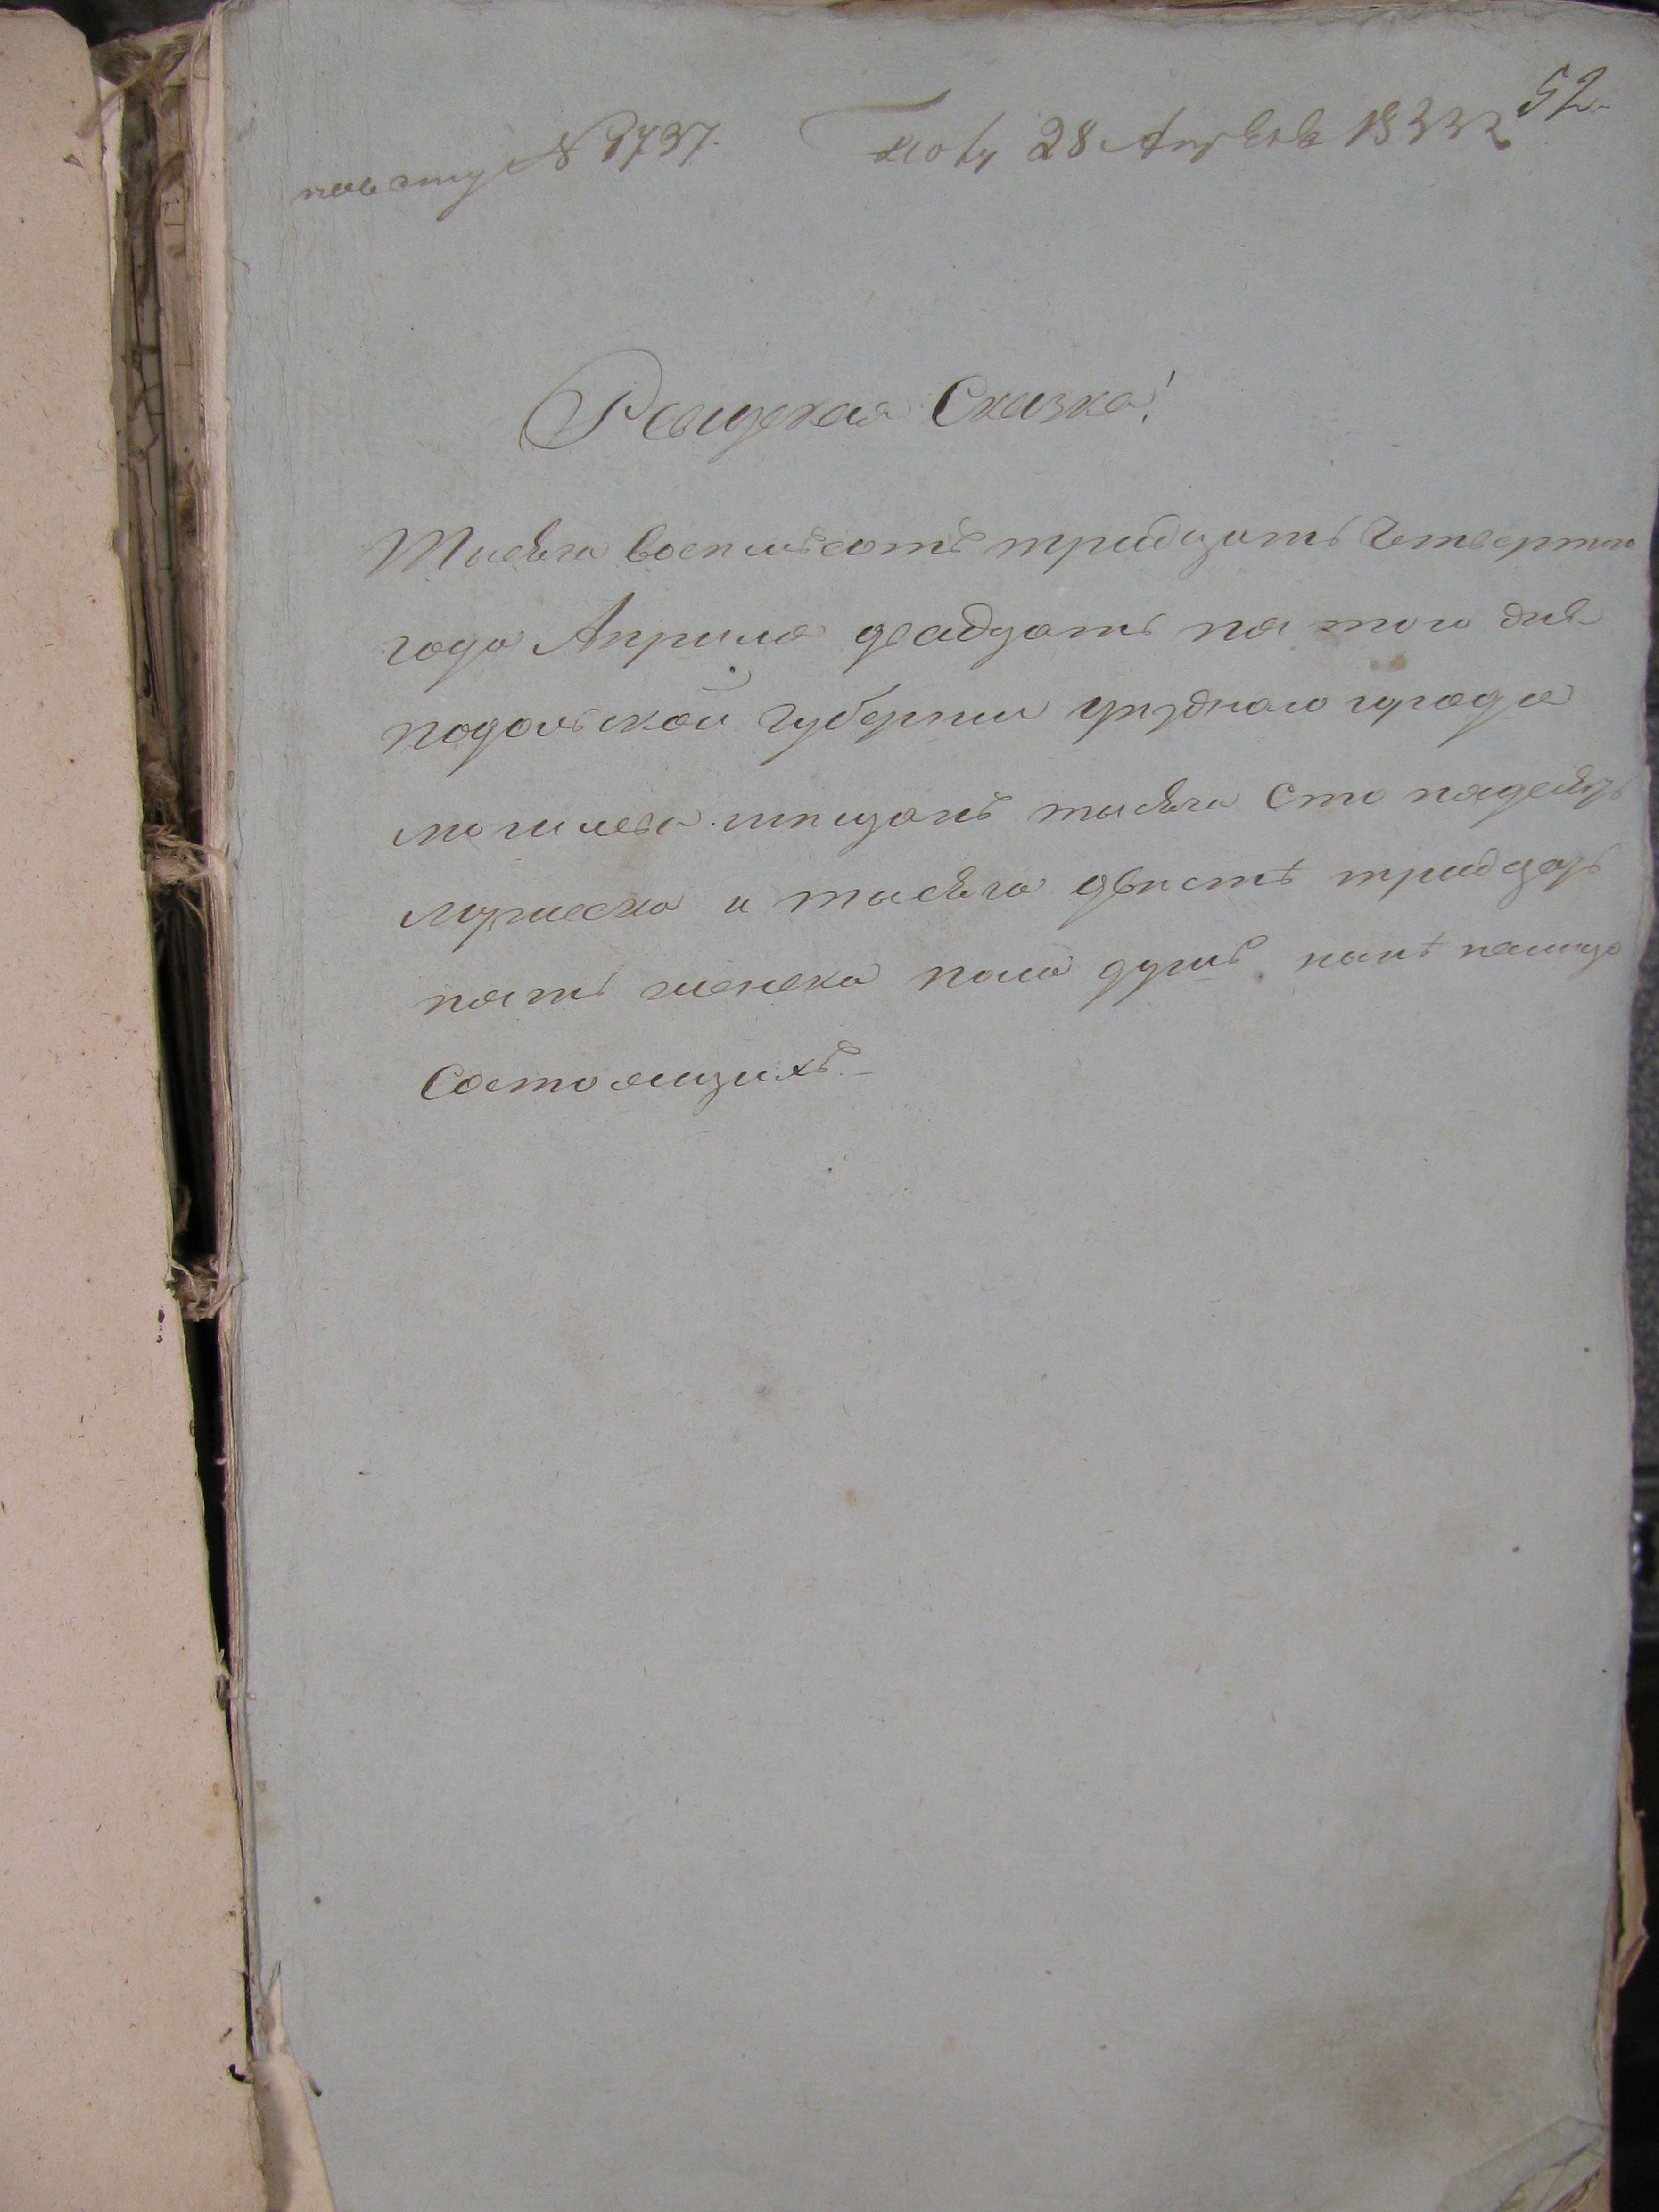 52.
№ 3737. 28 Апреля
Ревизская Сказка!
Тысяча восемьсотъ тридцать Четвертого
года Априля двадцать пятого дня
подольской Губернии уезднаго города
могилева мещанъ тысяча Сто
мужеска и тысяча двести тридцать
пять женска пола душъ налицо
Состоящихъ.—